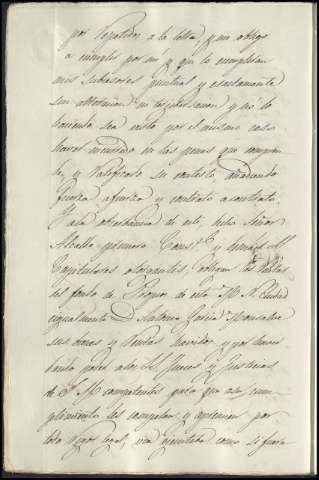 por repetidos a la letra, y me obligo
a cumplir por mi y que lo cumpliran
mis subcesores puntual y esactamente
sin alteracion ni y no lo
haciendo sea visto por el mismo caso
haver incurrido en las penas que compren-
de, y ratificado su contesto añadiendo
fuerza a fuerza y contrato a contrato.
Y a la observancia de esto, dicho Señor
Alcalde primero Consl. y demas SS.
Capitulares otorgantes, obligan las rentas
del fondo de Propios de esta M. N. Ciudad
igualmente D. Antonio Garcia Monsalve
sus vienes y rentas havidos y por haver
dando poder a los SS. Jueces y Justicias
de S. M. competentes para que a su cum-
plimiento les compelan y apremien por
todo rigor legal, via egecutiva como si fuera